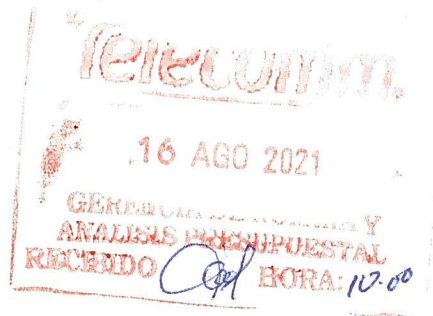 Telecomm.
16 AGO 2021
GERENCIA DE Y
ANALISIS PRESUPUESTAL
RECIBIDO HORA: 10:00